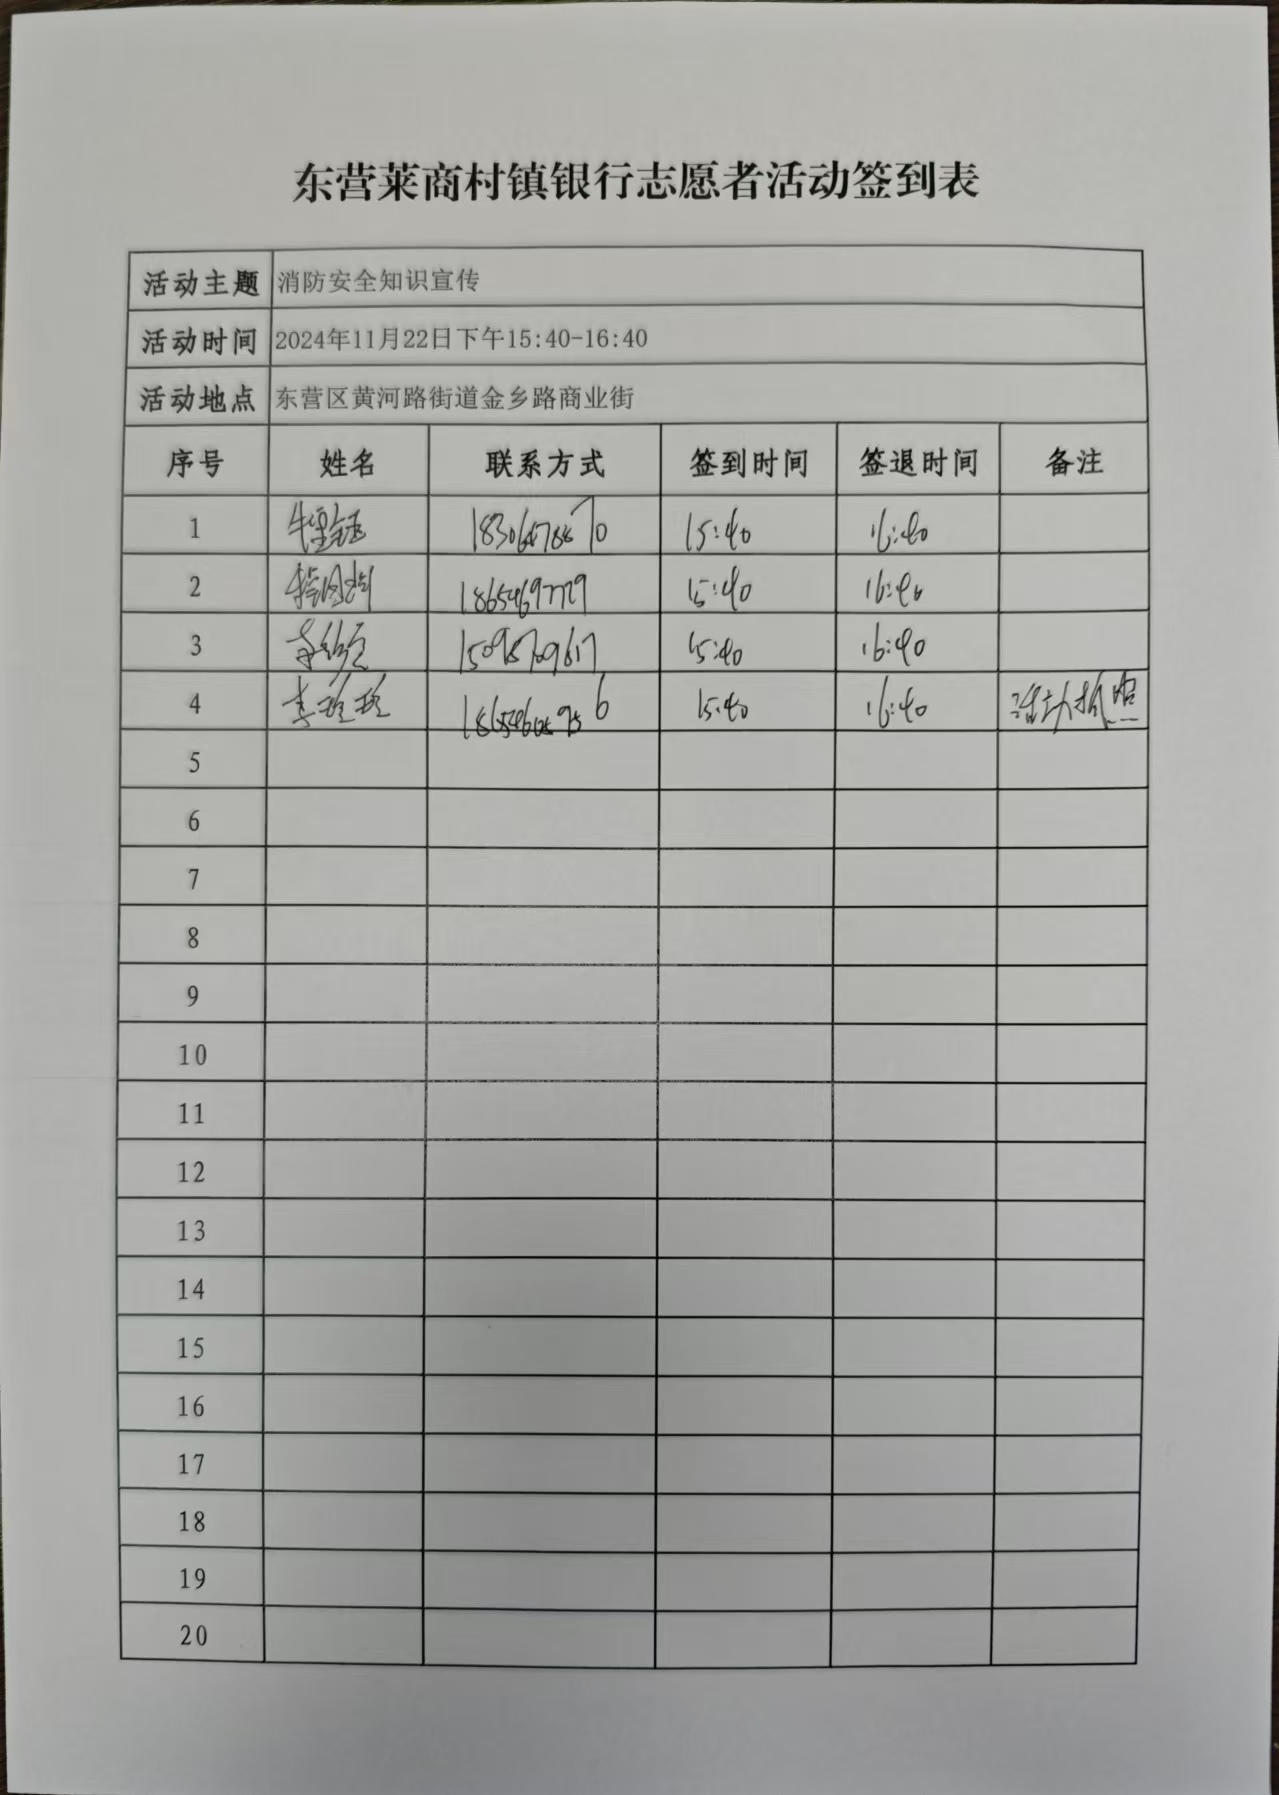 东营莱商村镇银行志愿者活动签到表
活动主题 消防安全知识宣传
活动时间 2024年11月22日下午15:40-16:40
活动地点 东营区黄河路街道金乡路商业街
序号 姓名 联系方式 签到时间 签退时间 备注
1 15:40 16:40
2 15:40 16:40
3 李 15:40 16:40
4 李珍珍 15:40 16:40 活动抓照
5
6
7
8
9
10
11
12
13
14
15
16
17
18
19
20